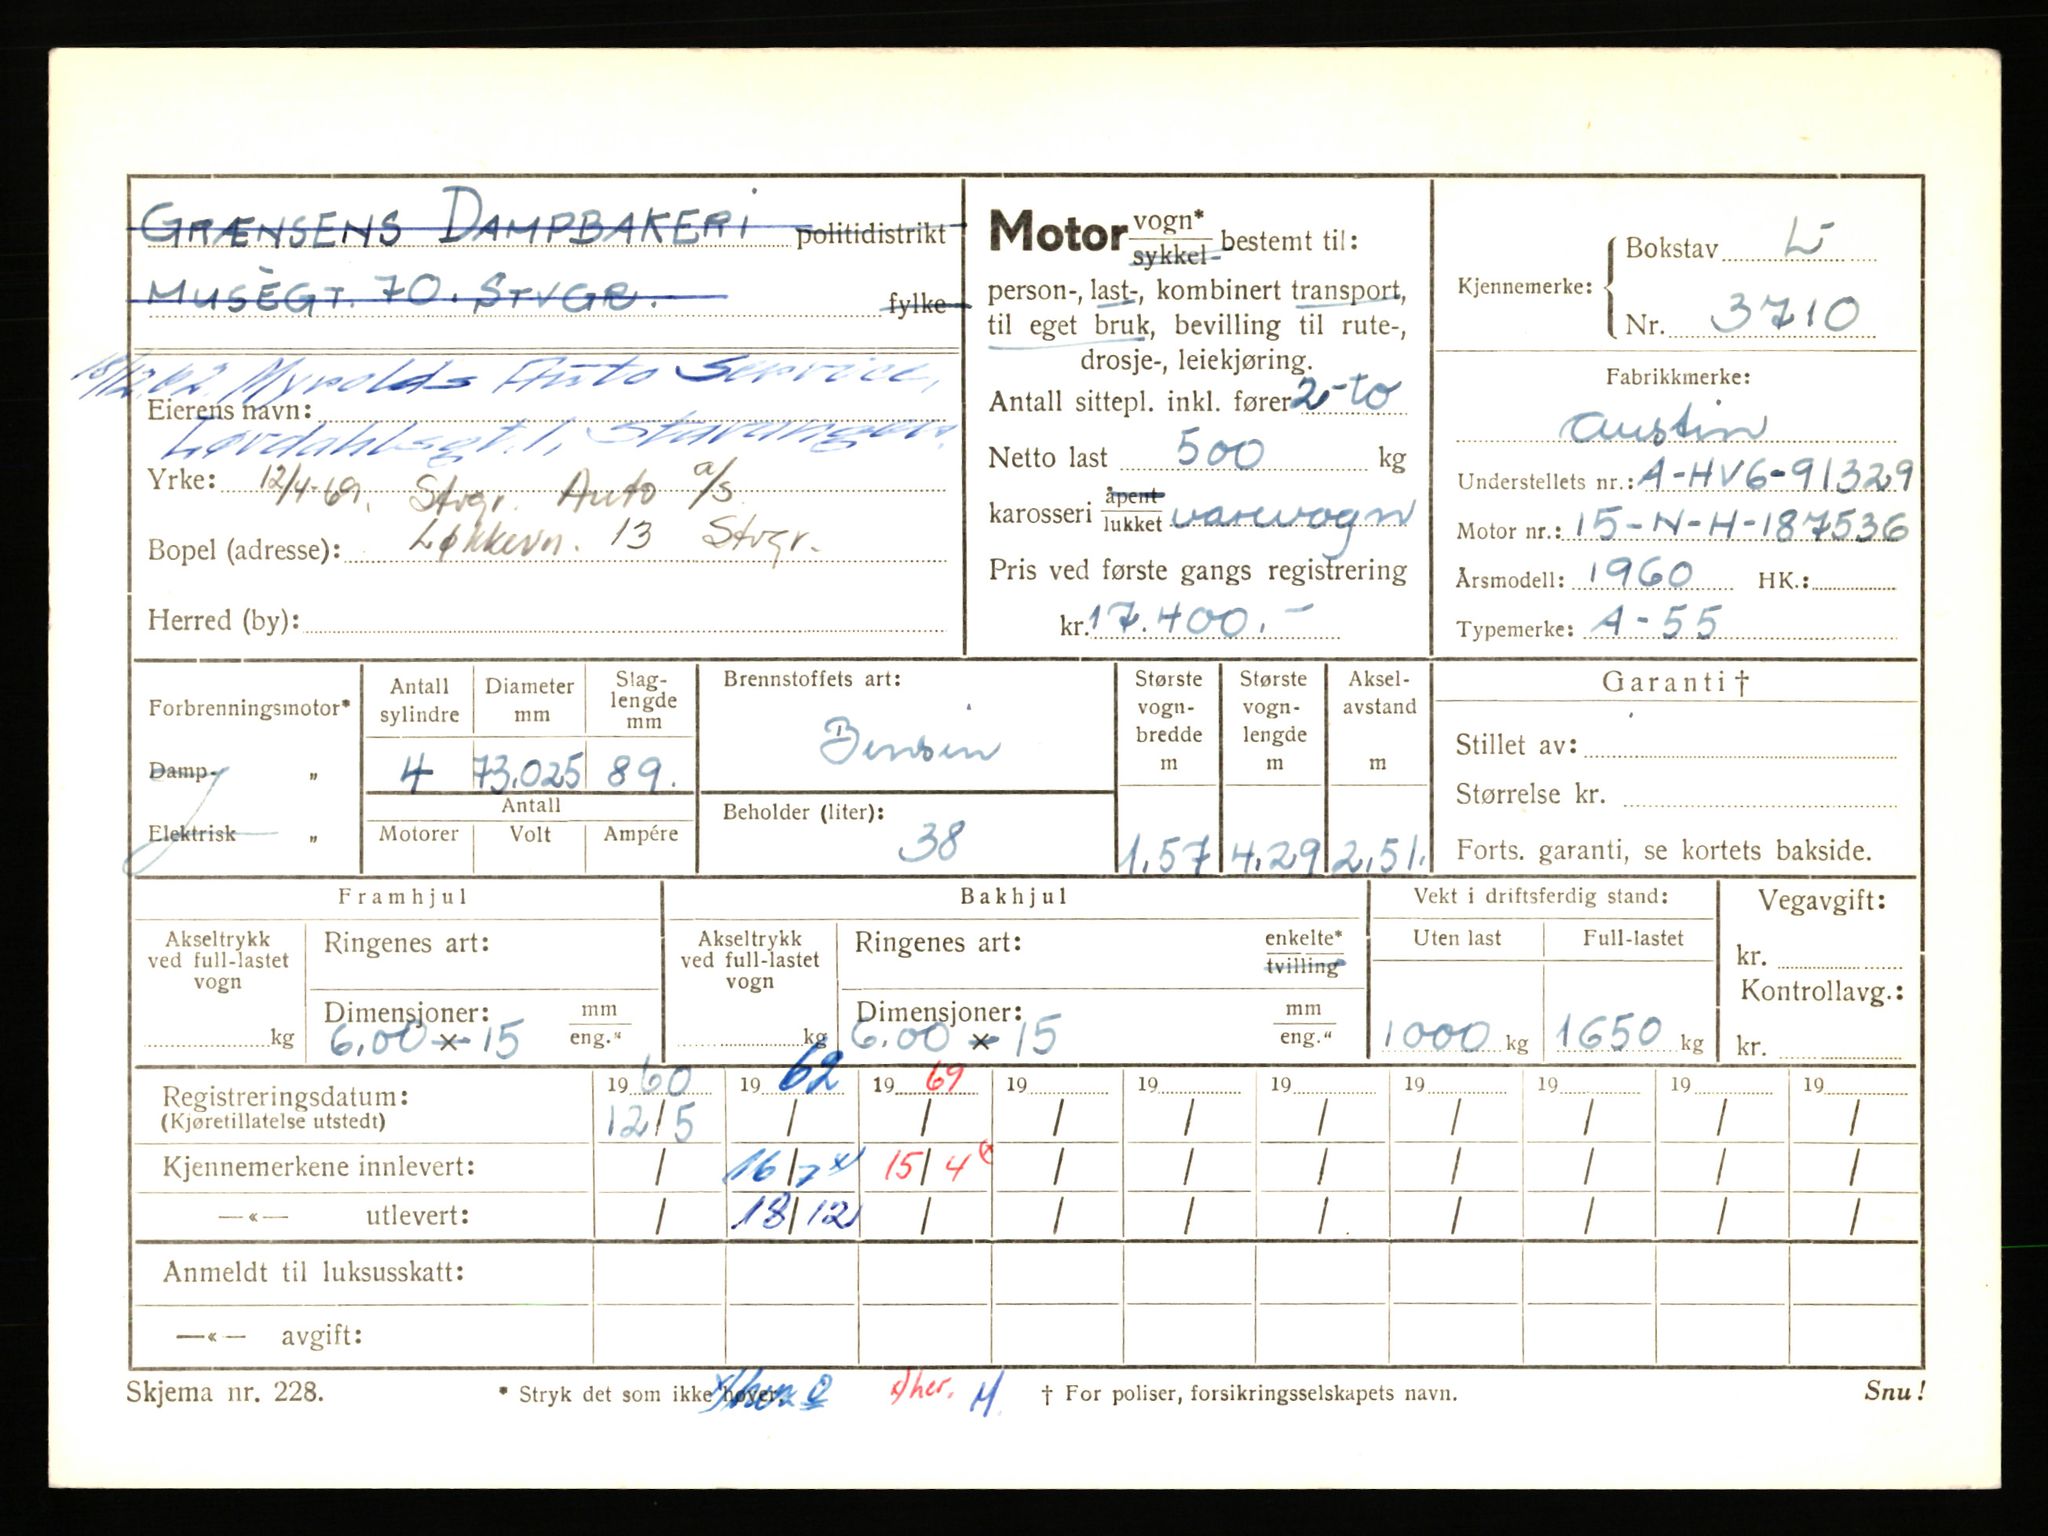 GRÆNSENS DAMPBAKERI politidistrikt
MUSÈGT. 70. STVGR. fylke
18/12.62. Myrolds Auto Service,
Eierens navn:
Lørdahlsgt. 1, Stavanger.
Yrke: 12/4-69. Stvgr. Auto a/s
Bopel (adresse): Løkkevn. 13 Stvgr.
Herred (by):
Motor vogn* sykkel bestemt til:
person-, last-, kombinert transport,
til eget bruk, bevilling til rute-,
drosje-, leiekjøring.
Antall sittepl. inkl. fører 2-to
Netto last 500 kg
karosseri åpent lukket varevogn
Pris ved første gangs registrering
kr. 17.400.-
Kjennemerke:
Bokstav L-
Nr. 3710
Fabrikkmerke:
Austin
Understellets nr.: A-HV6-91329
Motor nr.: 15-N-H-187536
Årsmodell: 1960 HK.:
Typemerke: A-55
Forbrenningsmotor*
Damp- „
Elektrisk „
Antall sylindre
4
Diameter mm
73.025
Slag-
lengde
mm
89.
Antall
Motorer Volt Ampére
Brennstoffets art:
Bensin
Beholder (liter):
38
Største
vogn-
bredde
m
1,57
Største
vogn-
lengde
m
4,29
Aksel-
avstand
m
2,51.
Garanti †
Stillet av:
Størrelse kr.
Forts. garanti, se kortets bakside.
Framhjul
Akseltrykk
ved full-lastet
vogn
kg
Ringenes art:
Dimensjoner: mm eng.“
6.00 x 15
Bakhjul
Akseltrykk
ved full-lastet
vogn
kg
Ringenes art: enkelte* tvilling
Dimensjoner: mm eng.“
6.00 x 15
Vekt i driftsferdig stand:
Uten last Full-lastet
1000 kg 1650 kg
Vegavgift:
kr.
Kontrollavg.:
kr.
Registreringsdatum: 1960 1962 1969 19 19 19 19 19 19 19
(Kjøretillatelse utstedt) 12/5 / / / / / / / / /
Kjennemerkene innlevert: / 16/7 x) 15/4 x / / / / / / /
—«— utlevert: / 18/12 / / / / / / / /
Anmeldt til luksusskatt:
—«— avgift:
Skjema nr. 228. * Stryk det som ikke høver. x) her. M. † For poliser, forsikringsselskapets navn. Snu!